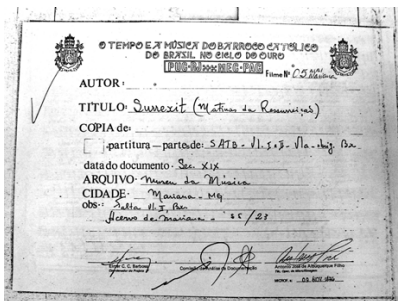 O TEMPO E A MÚSICA DO BARROCO CATÓLICO
DO BRASIL NO CICLO DO OURO
PUC-RJ MEC-PNA
Filme Nº
AUTOR:
TÍTULO: Surrexit (Matinas da Ressurreição)
CÓPIA de:
partitura - partes de: SATB - Vl. I e II - Vla - Bx.
data do documento - Sec. XIX
ARQUIVO - Museu da Música
CIDADE - Mariana - MG
obs: Falta Vl. I, Bx
Acervo de Mariana -
Antonio José de Albuquerque Filho